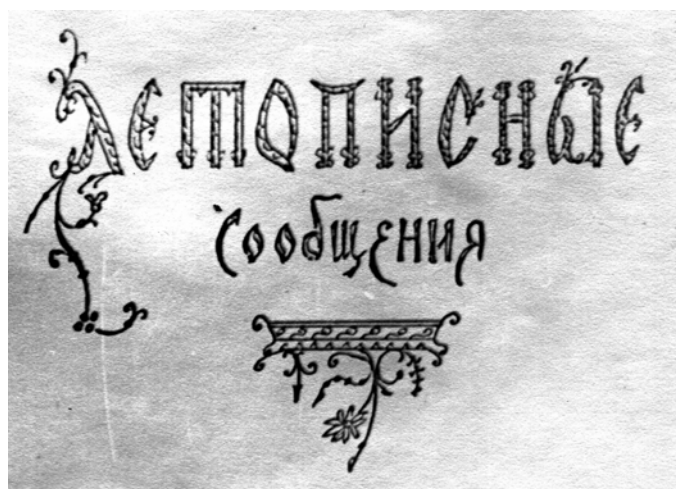 Летописные
сообщения